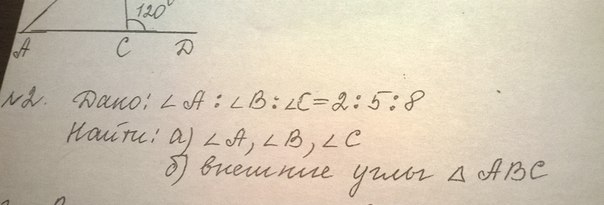 120°
A C D
№2. Дано: ∠A:∠B:∠C=2:5:8
Найти: а) ∠A, ∠B, ∠C
б) внешние углы △ABC